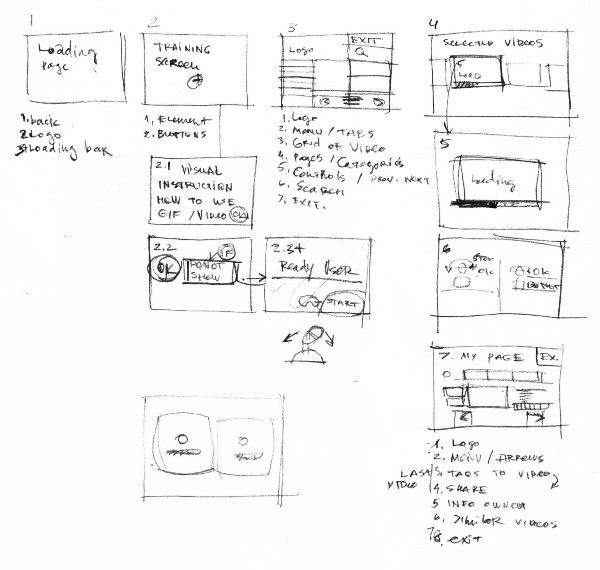 1
Loading
Page
1. back
2. Logo
3. Loading bar
2
TRAINING
SCREEN
1. Element
2. BUTTONS
2.1 VISUAL
INSTRUCTION
HOW TO USE
GIF / VIDEO OK
2.2
IF
OK
DO NOT
SHOW
2.3
Ready USER
START
3
EXIT
Logo
1. Logo
2. MENU / TABS
3. Grid of Video
4. Pages / Categories
5. Controls / PREV. NEXT
6. Search
7. EXIT.
4
SELECTED VIDEOS
5
LOAD
5
Loading
6
OK
OK
7. MY PAGE
EX.
1. Logo
2. MENU / ARROWS
LAST
VIDEO
3. TABS TO VIDEO
4. SHARE
5 INFO OWNER
6. Similar VIDEOS
8. exit